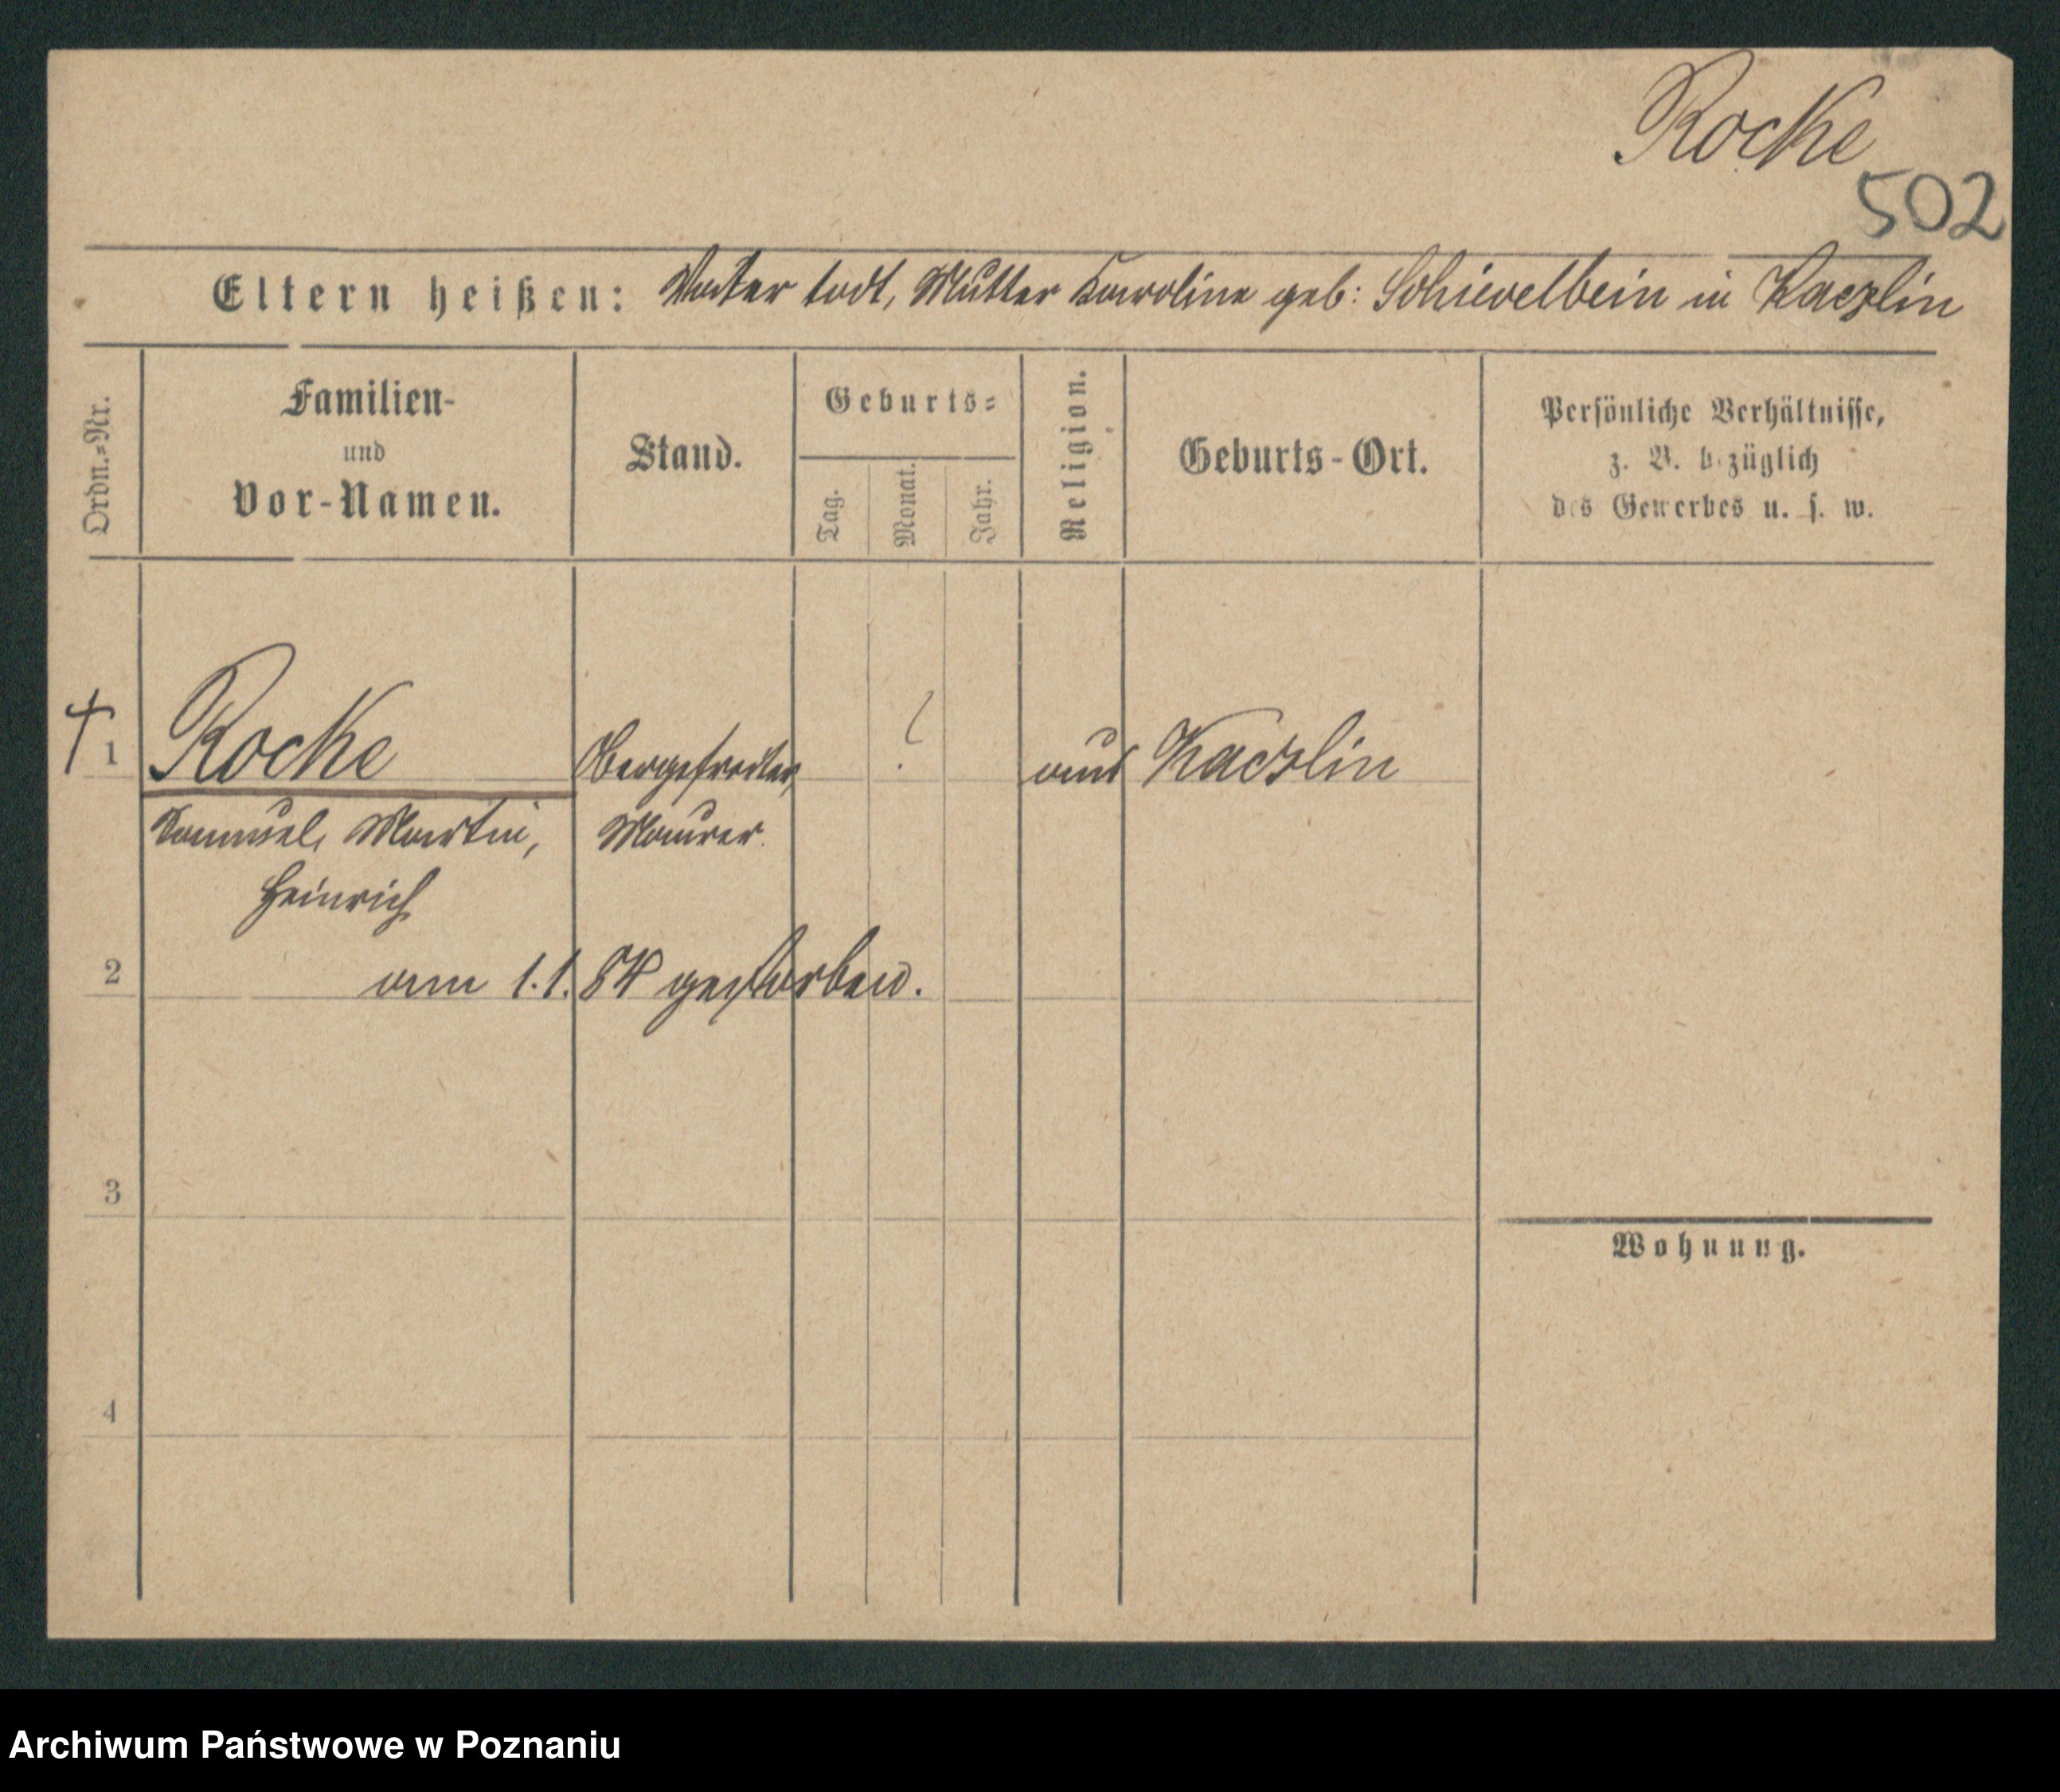 Rocke
502
Eltern heißen: Vater todt, Mutter Karoline geb: Schievelbein in Kaczlin
Ordn.=Nr.
Familien-
und
Vor-Namen.
Stand.
Geburts=
Tag.
Monat.
Jahr.
Religion.
Geburts-Ort.
Persönliche Verhältnisse,
z. B. bezüglich
des Gewerbes u. s. w.
† 1 Rocke Obergefreiter, ? aus Kaczlin
Samuel, Martin, Maurer.
Heinrich
2 am 1.1.84 gestorben.
3
Wohnung.
4
Archiwum Państwowe w Poznaniu